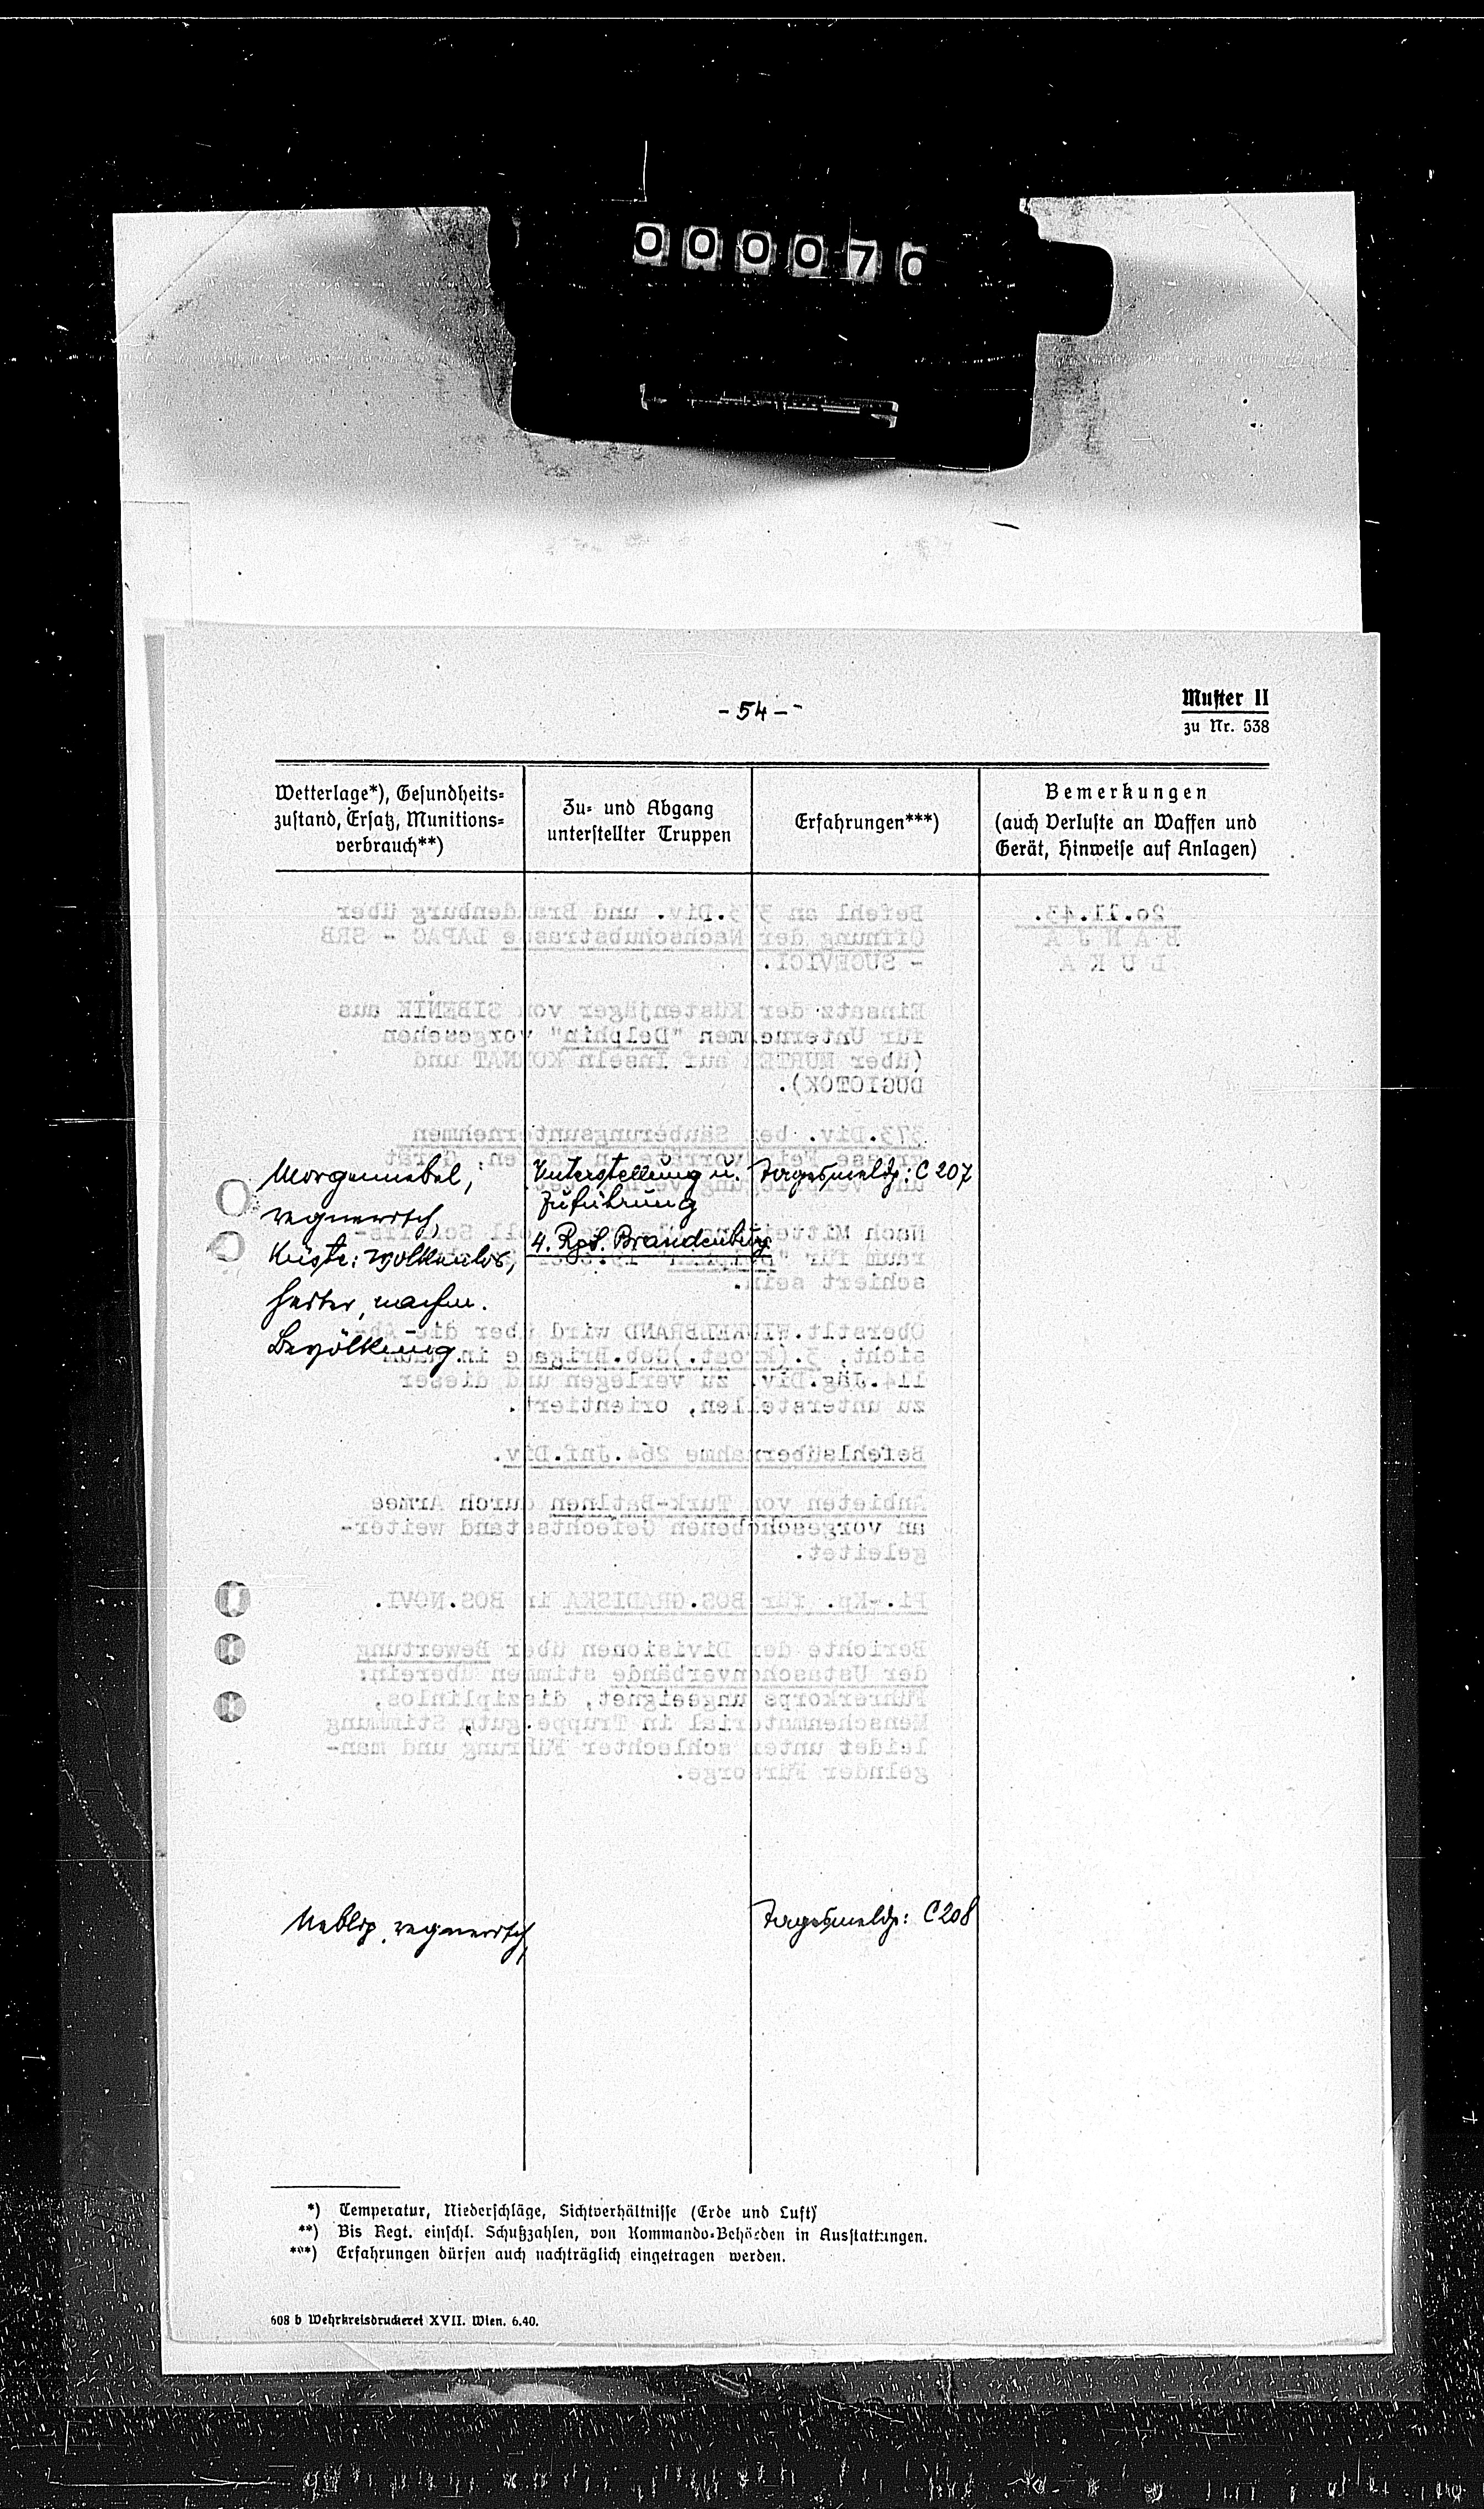 000070
- 54 -
Muster II
zu Nr. 538
Wetterlage*), Gesundheits-
zustand, Ersatz, Munitions-
verbrauch**)
Zu- und Abgang
unterstellter Truppen
Erfahrungen***)
Bemerkungen
(auch Verluste an Waffen und
Gerät, Hinweise auf Anlagen)
2o.11.43.
B A N J A
L U K A
Befehl an 373.Div. und Brandenburg über
Öffnung der Nachschubstrasse LAPAC - SRB
- SUCEVICI.
Einsatz der Küstenjäger von SIBENIK aus
für Unternehmen "Delphin" vorgesehen
(über MURTER auf Inseln KORNAT und
DUGIOTOK).
373.Div. bei Säuberungsunternehmen
Nach
raum für "Delphin"
schiert sein.
Oberstlt. wird über die Ab-
sicht, 3.(kroat.)Geb.Brigade in Raum
114.Jäg.Div. zu verlegen und dieser
zu unterstellen, orientiert.
Befehlsübernahme 264.Inf.Div.
Anbieten von Turk-Batlnen durch Armee
an vorgeschobenen Gefechtsstand weiter-
geleitet.
Pi.-Kp. für BOS.GRADISKA in BOS.NOVI.
Berichte der Divisionen über Bewertung
der Ustaschenverbände stimmen überein:
Führerkorps ungeeignet, disziplinlos,
Menschenmaterial in Truppe gut, Stimmung
leidet unter schlechter Führung und man-
gelnder Fürsorge.
Morgennebel,
regnerisch,
Küste: wolkenlos,
heiter, nachm.
Bewölkung
Unterstellung u.
Zuführung
4. Rgt. Brandenburg
Tagesmeldg: C 207
Neblig, regnerisch,
Tagesmeldg: C 208
*) Temperatur, Niederschläge, Sichtverhältnisse (Erde und Luft)
**) Bis Regt. einschl. Schußzahlen, von Kommando-Behörden in Ausstattungen.
***) Erfahrungen dürfen auch nachträglich eingetragen werden.
608 b Wehrkreisdruckerei XVII. Wien. 6.40.